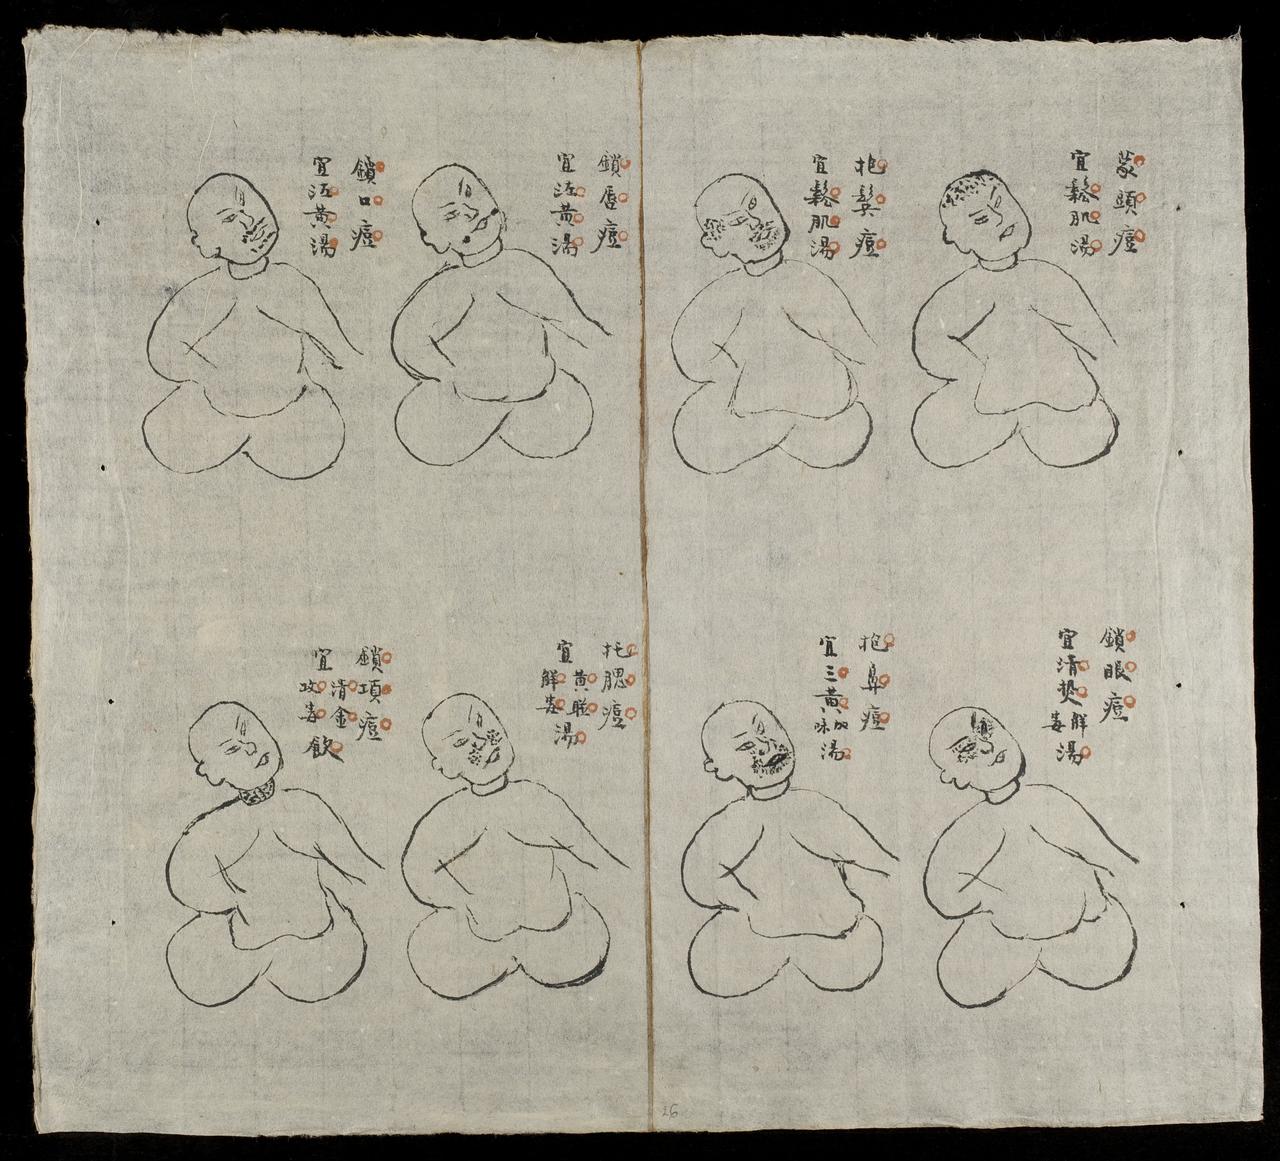 蒙頭痘
宜鬆肌湯
抱鬓痘
宜鬆肌湯
鎖唇痘
宜江黄湯
鎖口痘
宜江黄湯
鎖眼痘
宜清热解毒湯
抱鼻痘
宜三黄加味湯
托腮痘
宜黄聪解毒湯
鎖項痘
宜清金攻毒飲
26